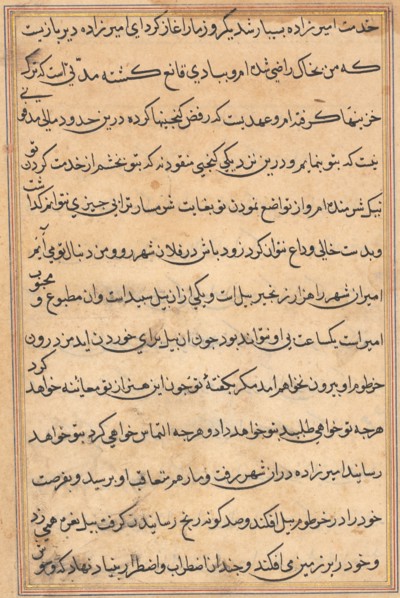 خدمت امیرزاده بسیار شد یکروز مار آغاز کرد ای امیرزاده دیر باز یست
که من بخاک راضی شده ام و ببادی قانع کشته مدتی است که ترک
خزینها کرفته ام و عهدیست که رفض کنجینها کرده درین حدود مالی مدفون
نیست که بتو بنمایم و درین نزدیکی کنجی مفقود نه که بتو بخشم از خدمت کردن تو
نیک شرمنده ام و از تواضع نمودن تو بغایت شرمسار ترا بی چیزی نتوانم کذاشت
و بدست خالی وداع نتوان کرد زود باش در فلان شهر رو و من دنبال تو می آیم
امیر ان شهر را هزار زنجیر پیل است و یکی از ان پیل سپید است و ان مطبوع و محبوب
امیر است یکساعت بی او نتواند بود چون ان پیل برای خوردن اید من درون
خرطوم او بیرون نخواهم امد مکر بکفتهٔ تو چون این هنر از تو معاینه خواهد کرد
هرچه تو خواهی طلبید بتو خواهد داد و هرچه التماس خواهی کرد بتو خواهد
رسانید امیرزاده در ان شهر رفت و مار هم متعاقب او برسید و بفرصت
خود را در خرطوم پیل افکند و صد کونه رنج رسانیدن کرفت پیل نعره همی زد
و خود را بر زمین می افکند و چندان اضطراب و اضطرار بنیاد نهاد که